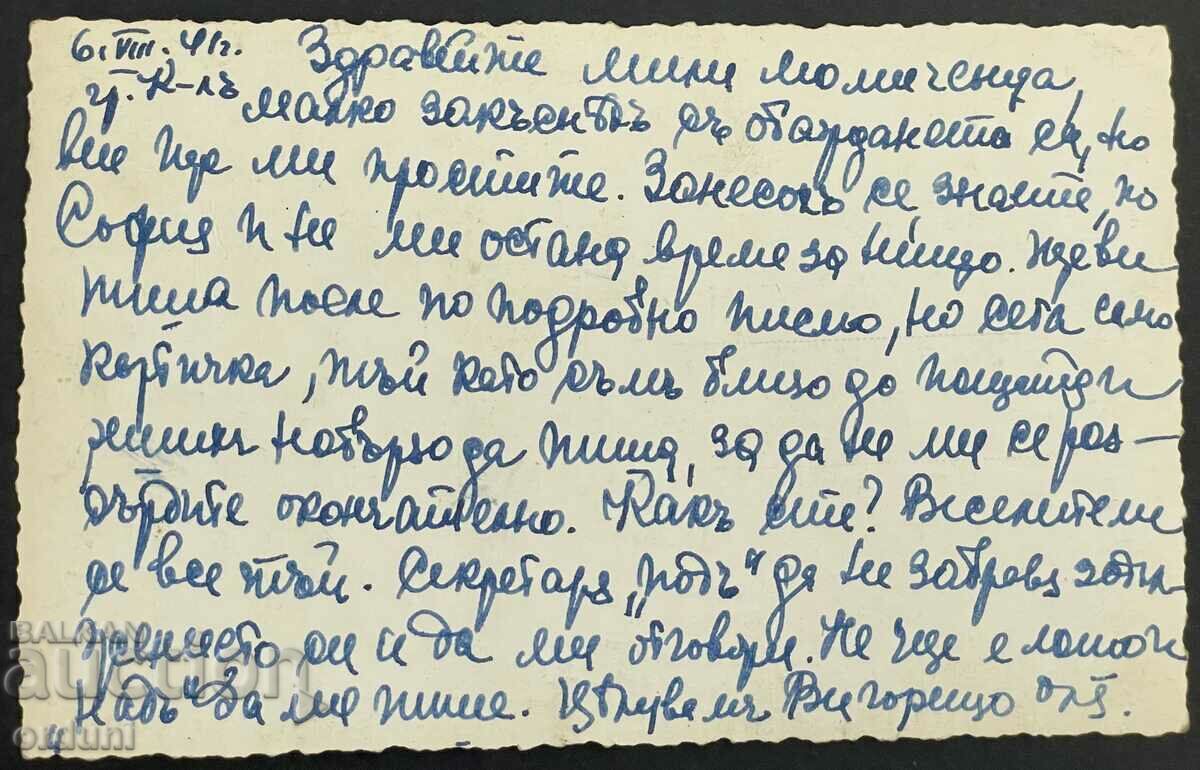 6. VIII. 41 г.
гр. К-лъ
Здравейте мили момиченца,
малко закъснѣхъ съ обаждането си, но
вие ще ми простите. Занесохъ се, знаете, по
София и не ми остана време за нищо. Ще ви
пиша после по подробно писмо, но сега само
картичка, тъй като съмъ близо до пощата и
набързо да пиша, за да не ми се раз-
сърдите окончателно. Какъ сте? Веселите ли
се все тъй. Секретаря „подъ“ да не забравя задъл-
жението си и да ми отговори. Не ще е лошо и
„надъ“ да ми пише. Цѣлувамъ
BALKAN
auction
orduni